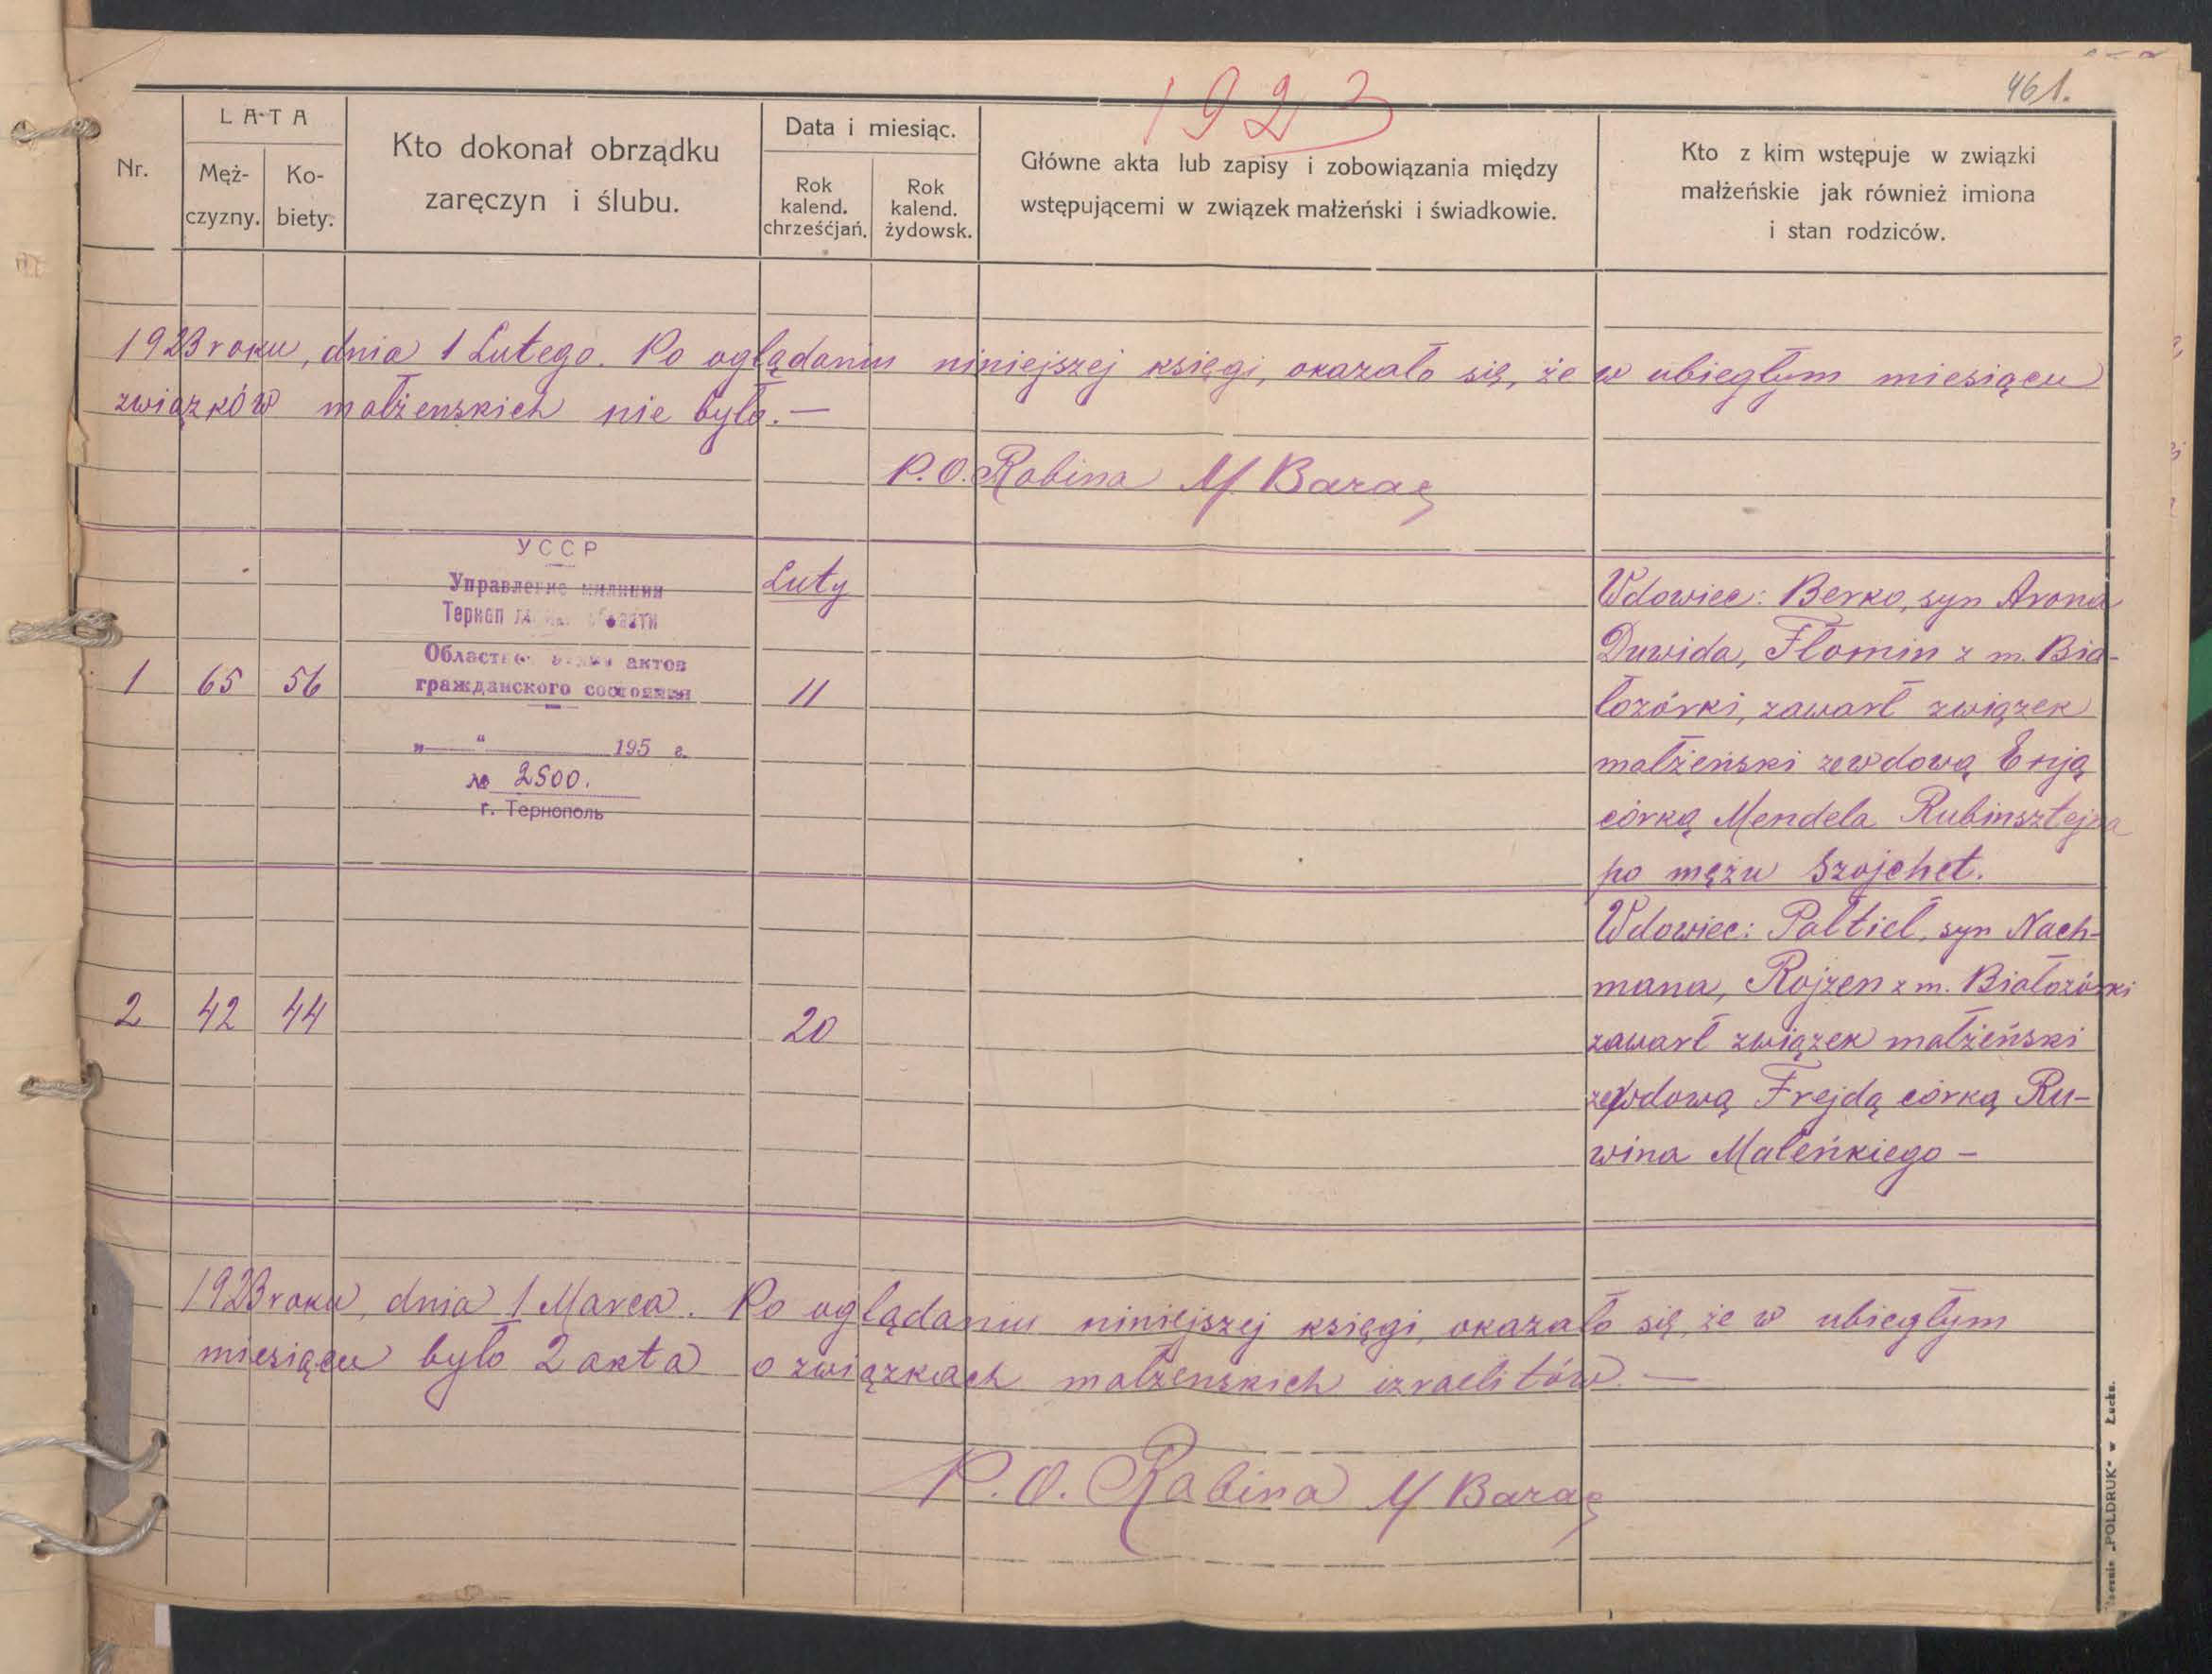 1923
461.
LATA
Nr.
Męż-
czyzny.
Ko-
biety.
Kto dokonał obrządku
zaręczyn i ślubu.
Data i miesiąc.
Rok
kalend.
chrześćjań.
Rok
kalend.
żydowsk.
Główne akta lub zapisy i zobowiązania między
wstępującemi w związek małżeński i świadkowie.
Kto z kim wstępuje w związki
małżeńskie jak również imiona
i stan rodziców.
1923 roku, dnia 1 Lutego. Po oglądaniu niniejszej księgi, okazało się, że w ubiegłym miesiącu
związków małżenskich nie było. —
P.O. Rabina M Barac
УССР
Управление милиции
Терноп области
Област актов
гражданского состояния
„ “ 195 г.
№ 2500.
г. Тернополь
Luty
1 65 56
11
Wdowiec: Berko, syn Arona
Duwida, Fłomin z m. Bia-
łozórki, zawarł związek
małżeński zewdową
córką Mendela Rubinsztejna
po mężu Szojchet.
2 42 44
20
Wdowiec: Paltiel, syn Nach-
mana, Rojzen z m. Białozórki
zawarł związek małżeński
zewdową Frejdą córką Ru-
wina Maleńkiego —
1923 roku, dnia 1 Marca. Po oglądaniu niniejszej księgi, okazało się, że w ubiegłym
miesiącu było 2 akta o związkach małżenskich izraelitów. —
P. O. Rabina M Barac
„POLDRUK“ w Łucku.